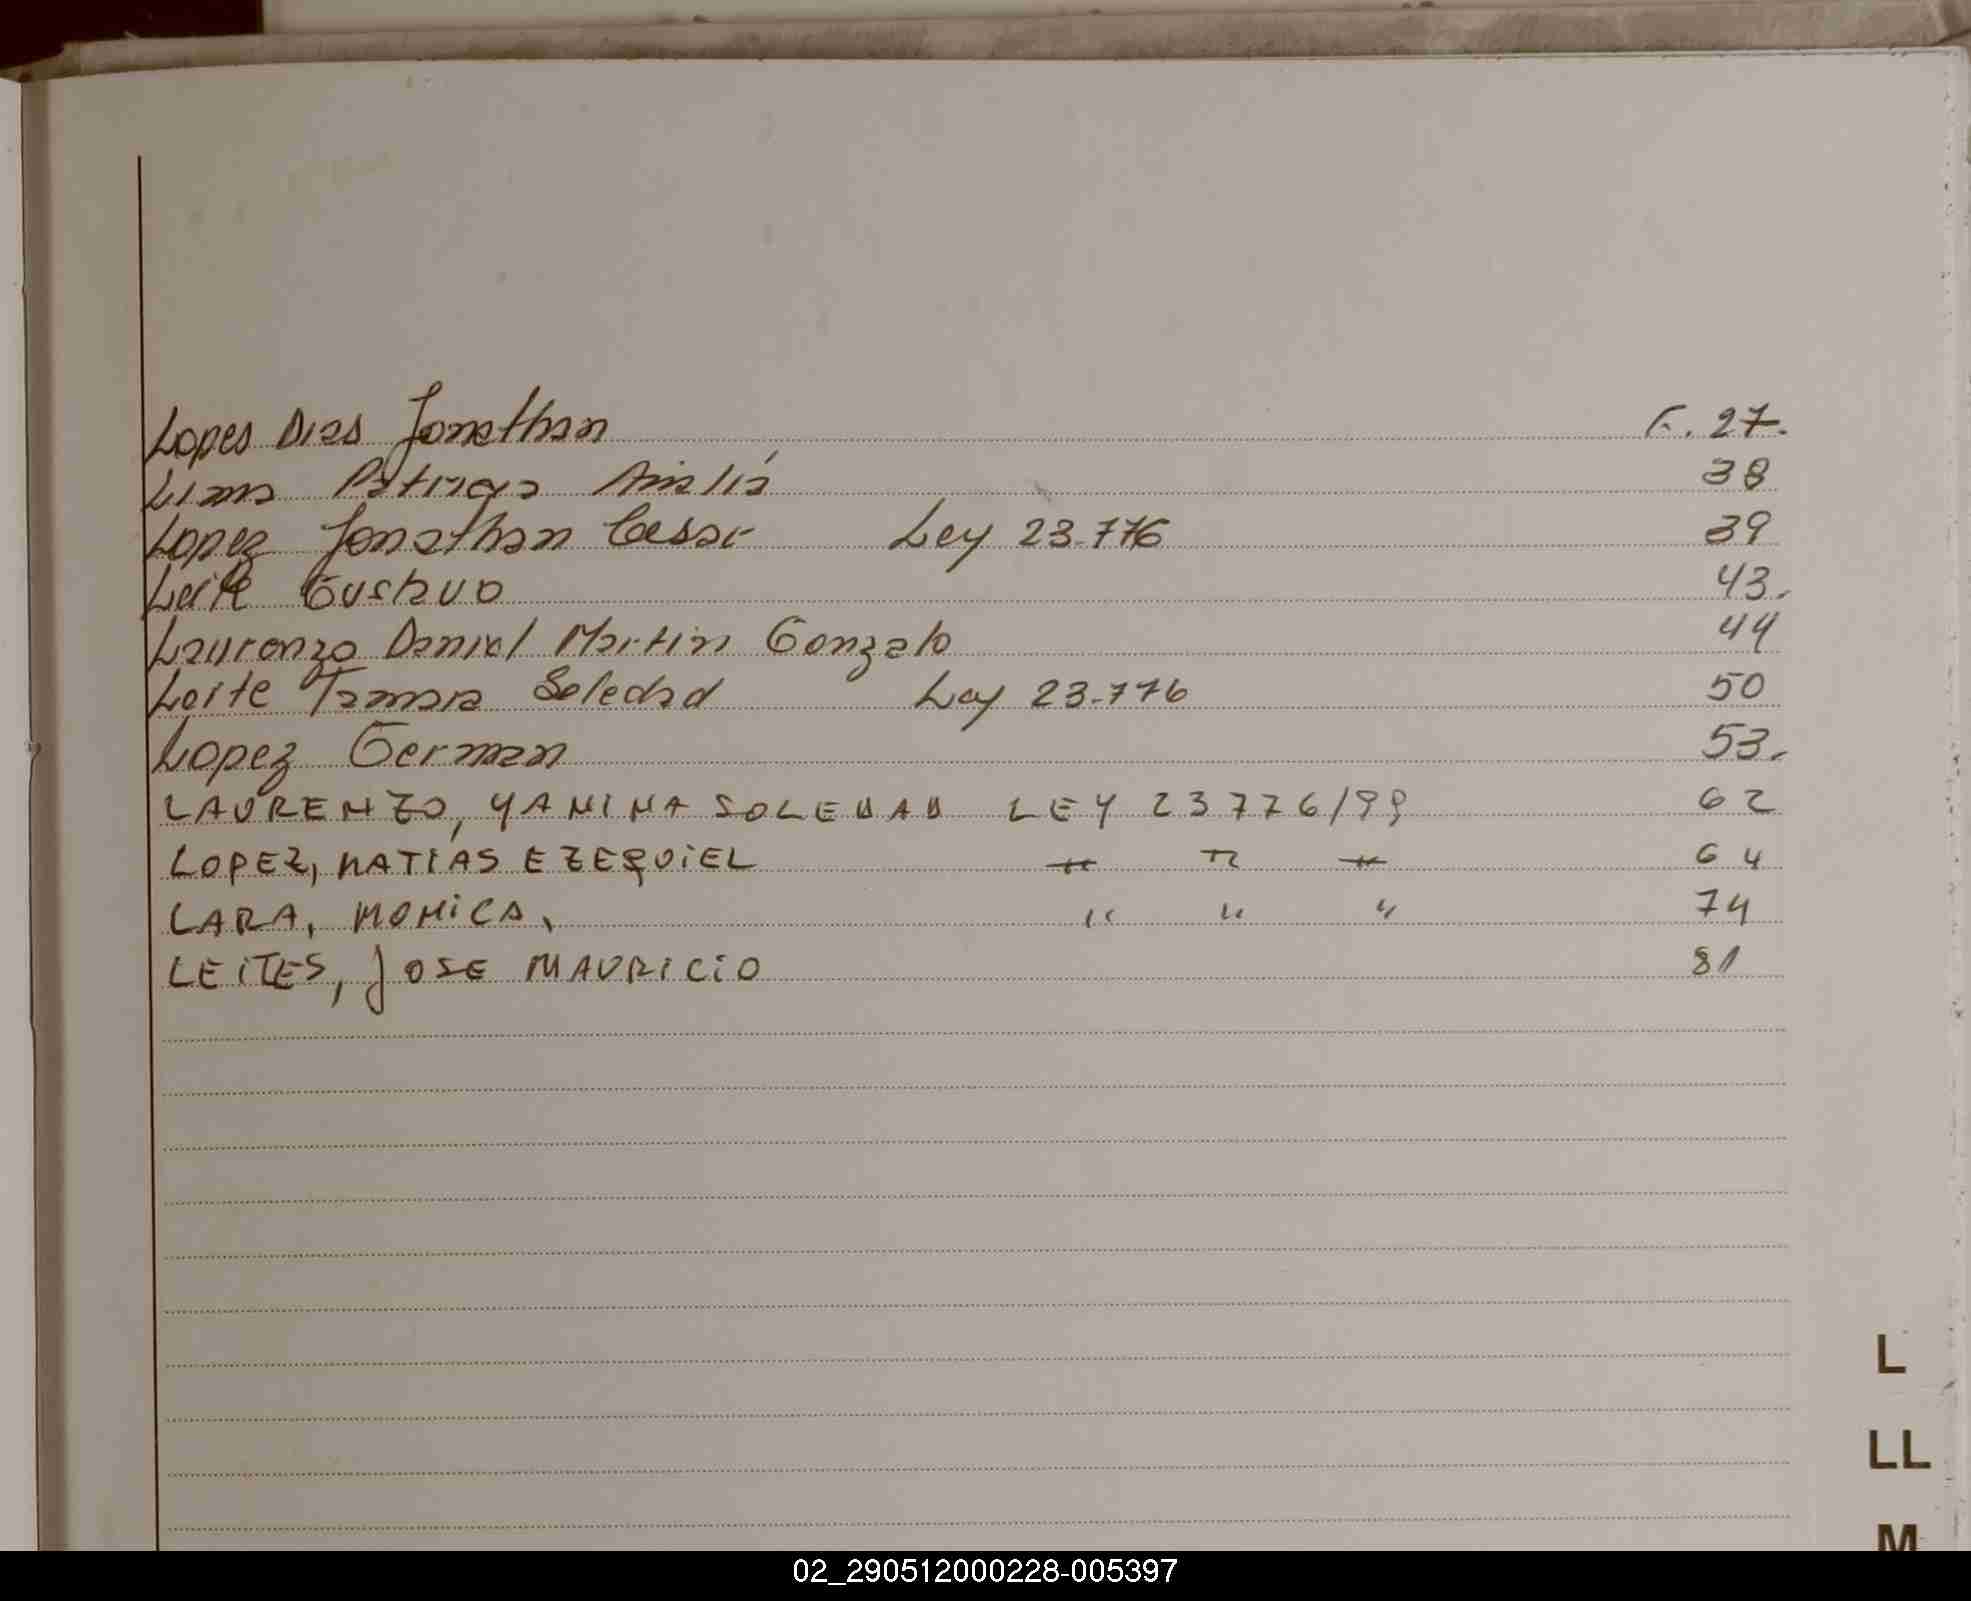 Lopes Dias Jonathan F. 27.
Lima Patricia Analía 38
Lopez Jonathan Cesar Ley 23.776 39
Leite Gustavo 43.
Laurenzo Daniel Martin Gonzalo 44
Leite Tamara Soledad Ley 23.776 50
Lopez German 53.
LAURENZO, YANINA SOLEDAD LEY 23776/99 62
LOPEZ, MATIAS EZEQUIEL " " " 64
LARA, MONICA, " " " 74
LEITES, JOSE MAURICIO 81
L
LL
M
02_290512000228-005397